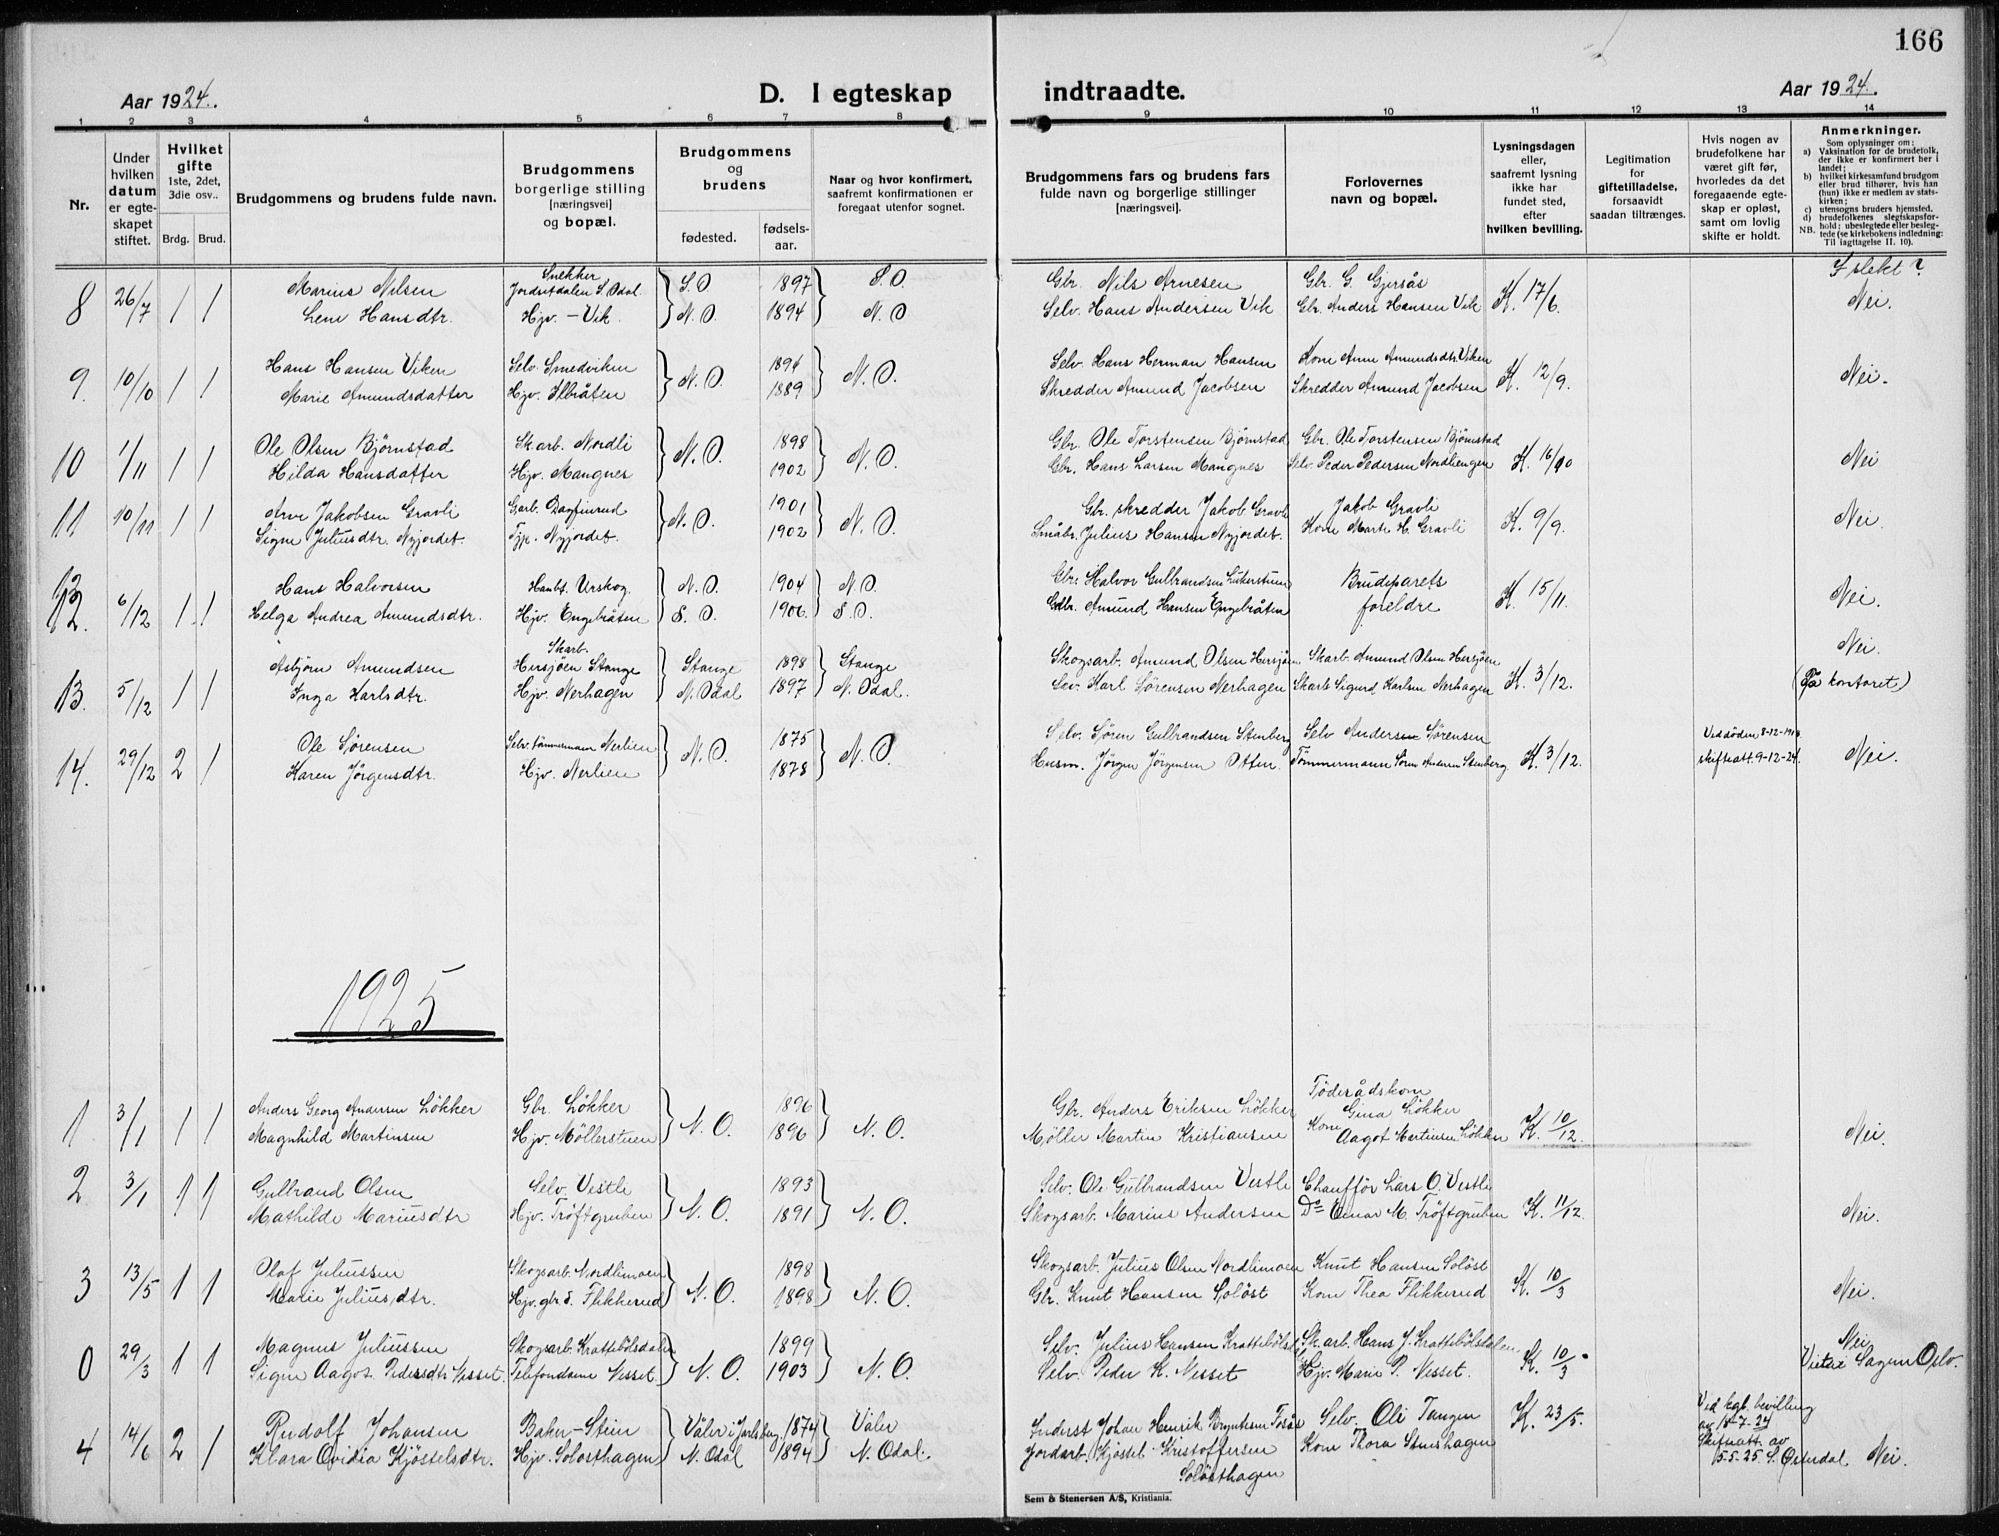 166
Aar 1924.
D. I egteskap indtraadte.
Aar 1924.
1 2 3 4 5 6 7 8 9 10 11 12 13 14
Nr.
Under hvilken datum er egteskapet stiftet.
Hvilket gifte
1ste, 2det, 3die osv..
Brdg. Brud.
Brudgommens og brudens fulde navn.
Brudgommens borgerlige stilling [næringsvei] og bopæl.
Brudgommens og brudens
fødested.
fødselsaar.
Naar og hvor konfirmert, saafremt konfirmationen er foregaat utenfor sognet.
Brudgommens fars og brudens fars fulde navn og borgerlige stillinger [næringsvei].
Forlovernes navn og bopæl.
Lysningsdagen eller, saafremt lysning ikke har fundet sted, efter hvilken bevilling.
Legitimation for giftetilladelse, forsaavidt saadan tiltrænges.
Hvis nogen av brudefolkene har været gift før, hvorledes da det foregaaende egteskap er opløst, samt om lovlig skifte er holdt.
Anmerkninger.
Som oplysninger om:
a) Vaksination for de brudefolk, der ikke er konfirmert her i landet;
b) hvilket kirkesamfund brudgom eller brud tilhører, hvis han (hun) ikke er medlem av statskirken;
c) utensogns bruders hjemsted.
d) brudefolkenes slegtskapsforhold: ubeslegtede eller beslegtede (se kirkebokens indledning: Til iagttagelse II. 10).
NB.
8 26/7 1 1 Marius Nilsen Snekker Jordetdalen S. Odal S.O 1897 S.O. Gbr. Nils Arnesen Gbr. G. Gjersås K. 17/6. I slekt?
Lene Hansdtr. Hjv. - Vik. N.O. 1894 N.O Selv. Hans Andersen Vik Gbr. Anders Hansen Vik Nei.
9. 10/10 1 1 Hans Hansen Viken Selv. Smedviken N.O. 1894 N.O. Selv. Hans Herman Hansen Kone Anne Amundsdtr. Viken K. 12/9. Nei.
Marie Amundsdatter Hjv. Ilbråten 1889 Skredder Amund Jacobsen Skredder Amund Jacobsen
10 1/11 1 1 Ole Olsen Bjørnstad Sk.arb. Nordli N.O. 1898 N.O. Gbr. Ole Torstensen Bjørnstad Gbr. Ole Torstensen Bjørnstad K. 16/10 Nei
Hilda Hansdatter Hjv. Mangnes 1902 Gbr. Hans Larsen Mangnes Selv. Peder Pedersen Nordliengen
11 10/11 1 1 Arne Jakobsen Gravli Garb. Dagfinrud N.O. 1901 N.O. Gbr. skredder Jakob Gravli Jakob Gravli K. 9/9. Nei.
Signe Juliusdtr. Nyjordet. Tjp. Nyjordet. 1902 Småbr. Julius Hansen Nyjordet. Kone Marte H. Gravli
12. 6/12 1 1 Hans Halvorsen Hanbt. Urskog. N.O. 1904 N.O. Gbr. Halvor Gulbrandsen Lukerstuen Brudeparets K. 15/11. Nei.
Helga Andrea Amundsdtr. Hjv. Engebråten S.O. 1906. S.O. Gbr. Amund Hansen Engebråten foreldre
13. 5/12 1 1 Asbjørn Amundsen Skarb. Hersjøen Stange Stange 1898 Stange Skogsarb. Amund Olsen Hersjøen Skarb. Amund Olsen Hersjøen K. 3/12. Nei.
Inga Karlsdtr. Hjv. Nerhagen N. Odal 1897 N. Odal. Selv. Karl Sørensen Nerhagen Skarb. Sigurd Karlsen Nerhagen (På kontoret)
14. 29/12 2 1 Ole Sørensen Selv. tømmermann Nerlien N.O. 1875 N.O. Selv. Søren Gulbrandsen Stenberg Selv Anders Sørensen K. 3/12. Ved døden, 8-12-
Karen Jørgensdtr. Hjv. Nerlien 1878 Husm. Jørgen Jørgensen Otten. Tømmermann Søren Andersen Stenberg. skifteatt. 9-12-24. Nei.
1925
1 3/1 1 1 Anders Georg Andersen Løkker Gbr. Løkker N.O. 1896 N.O. Gbr. Anders Eriksen Løkker Føderådskone Gina Løkker K. 10/12. Nei.
Magnhild Martinsen Hjv. Møllerstuen 1896 Møller Martin Kristiansen Kone Aagot Martinsen Løkken
2 3/1 1 1 Gulbrand Olsen Selv. Vestli N.O. 1893 N.O. Selv. Ole Gulbrandsen Vestli Chauffør Lars O. Vestli K. 11/12. Nei.
Mathilde Mariusdtr Hjv. Trøftgruben 1891 Skogsarb. Marius Andersen Do Einar M. Trøftgruben
3 13/5 1 1 Olaf Juliussen Skogsarb. Nordlimoen N.O. 1898 N.O. Skogsarb. Julius Olsen Nordlimoen Knut Hansen Soløst K. 10/3 Nei.
Marie Juliusdtr. Hjv. gbr. d. Flikkerud 1898 Gbr. Knut Hansen Soløst Kone Thea Flikkerud
0 29/3 1 1 Magnus Juliussen Skogsarb. Krattebølsdalen N.O. 1899 N.O. Selv. Julius Hansen Krattebølsd. Sk.arb. Hans J. Krattebølsdalen K. 10/3 Nei
Signe Aagot Pedersdtr Nesset. Telefondame Nesset. 1903 Selv. Peder K. Nesset Hjv. Marie P. Nesset. Viet i Sagene Oslo.
4 14/6 2 1 Rudolf Johansen Baker-Stein Våler i Jarlsberg. 1874 Våler Inderst Johan Henrik Selv. Ole Tangen K. 23/5. Ved kgl. bevilling av 18-7-24
Klara Ovidia Kjøstelsdtr. Hjv. Solosthagen N. Odal 1894 N. Odal. Jordarb. Kjøstel Kristoffersen Soløsthagen Kone Thora Steinshagen Skifteatt. av 15-5-25 S. Østerdal Nei.
Sem & Stenersen A/S, Kristiania.